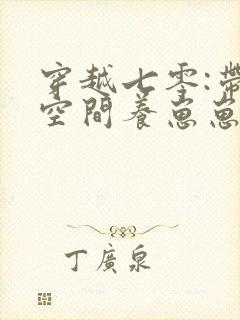 穿越七零:帶
空間養崽崽
丁廣泉